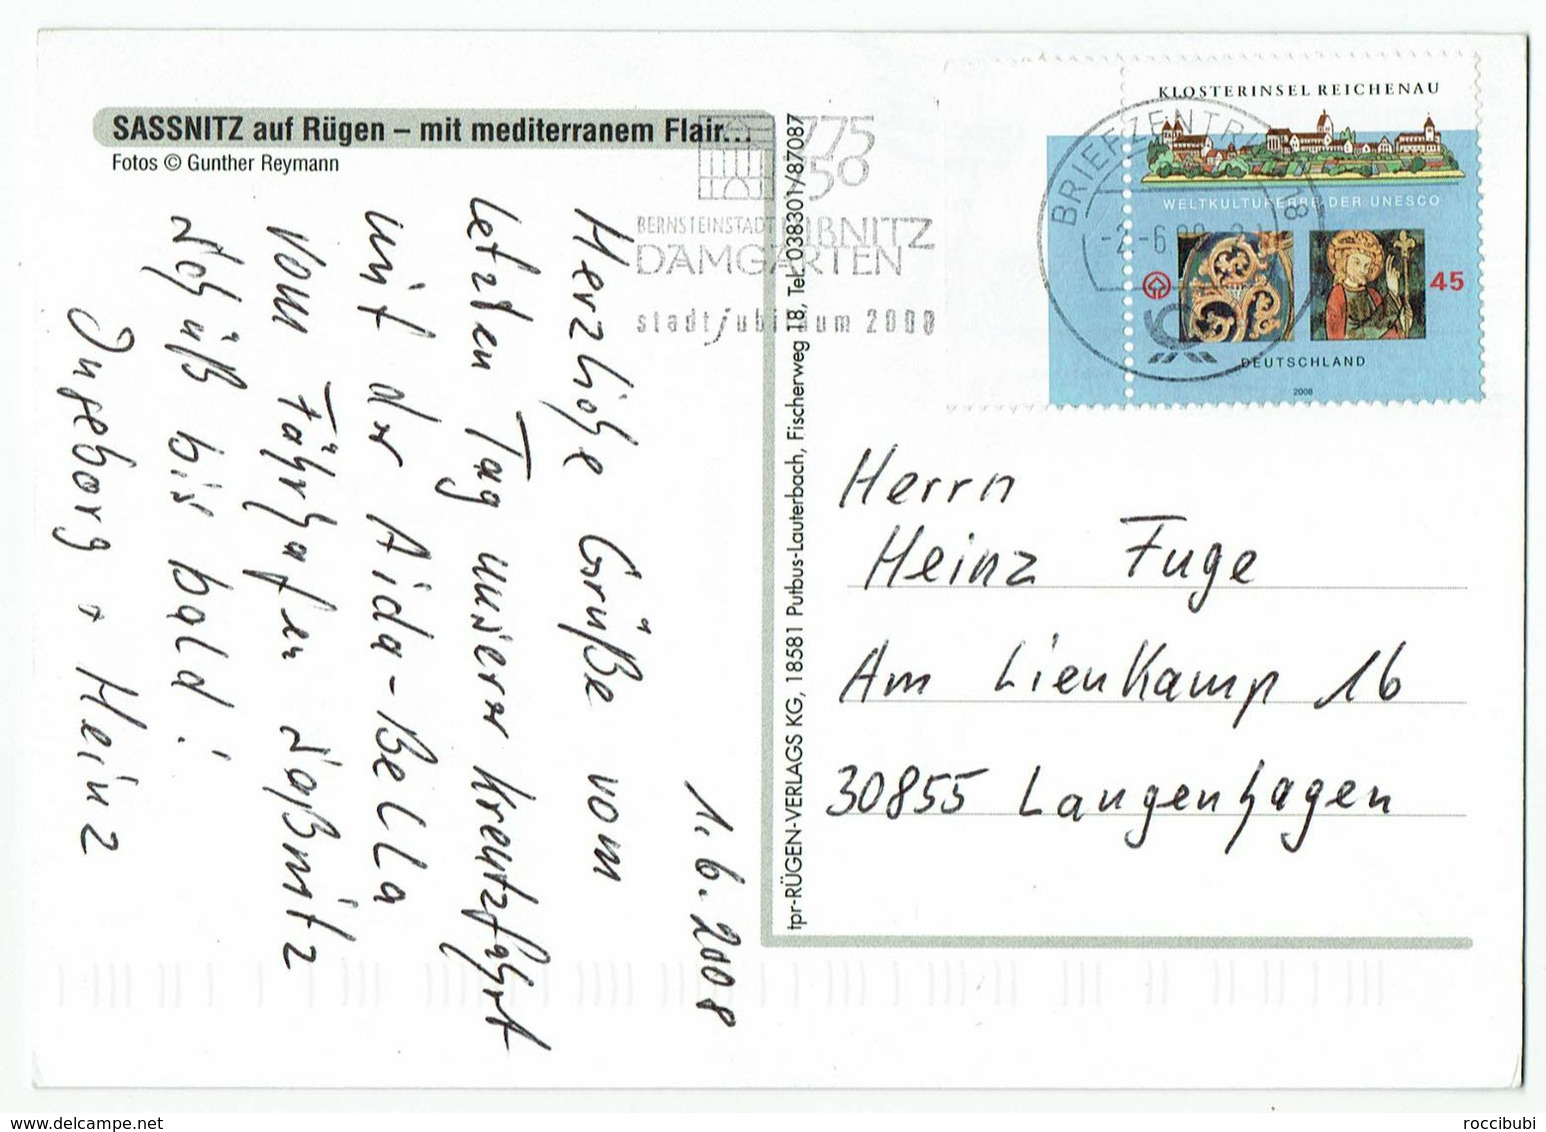 SASSNITZ auf Rügen – mit mediterranem Flair...
Fotos © Gunther Reymann
1.6.2008
Herzliche Grüße vom
letzten Tag unserer Kreuzfahrt
mit der Aida-Bella
vom Fährhafen Saßnitz
Tschüß bis bald!
Ingeborg + Heinz
tpr-RÜGEN-VERLAGS KG, 18581 Putbus-Lauterbach, Fischerweg 18, Tel. 038301/87087
775
750
BERNSTEINSTADT RIBNITZ
DAMGARTEN
stadtjubiläum 2008
BRIEFZENTRUM 18
-2.-6.08
KLOSTERINSEL REICHENAU
WELTKULTURERBE DER UNESCO
45
DEUTSCHLAND
2008
Herrn
Heinz Fuge
Am Lienkamp 16
30855 Langenhagen
roccibubi